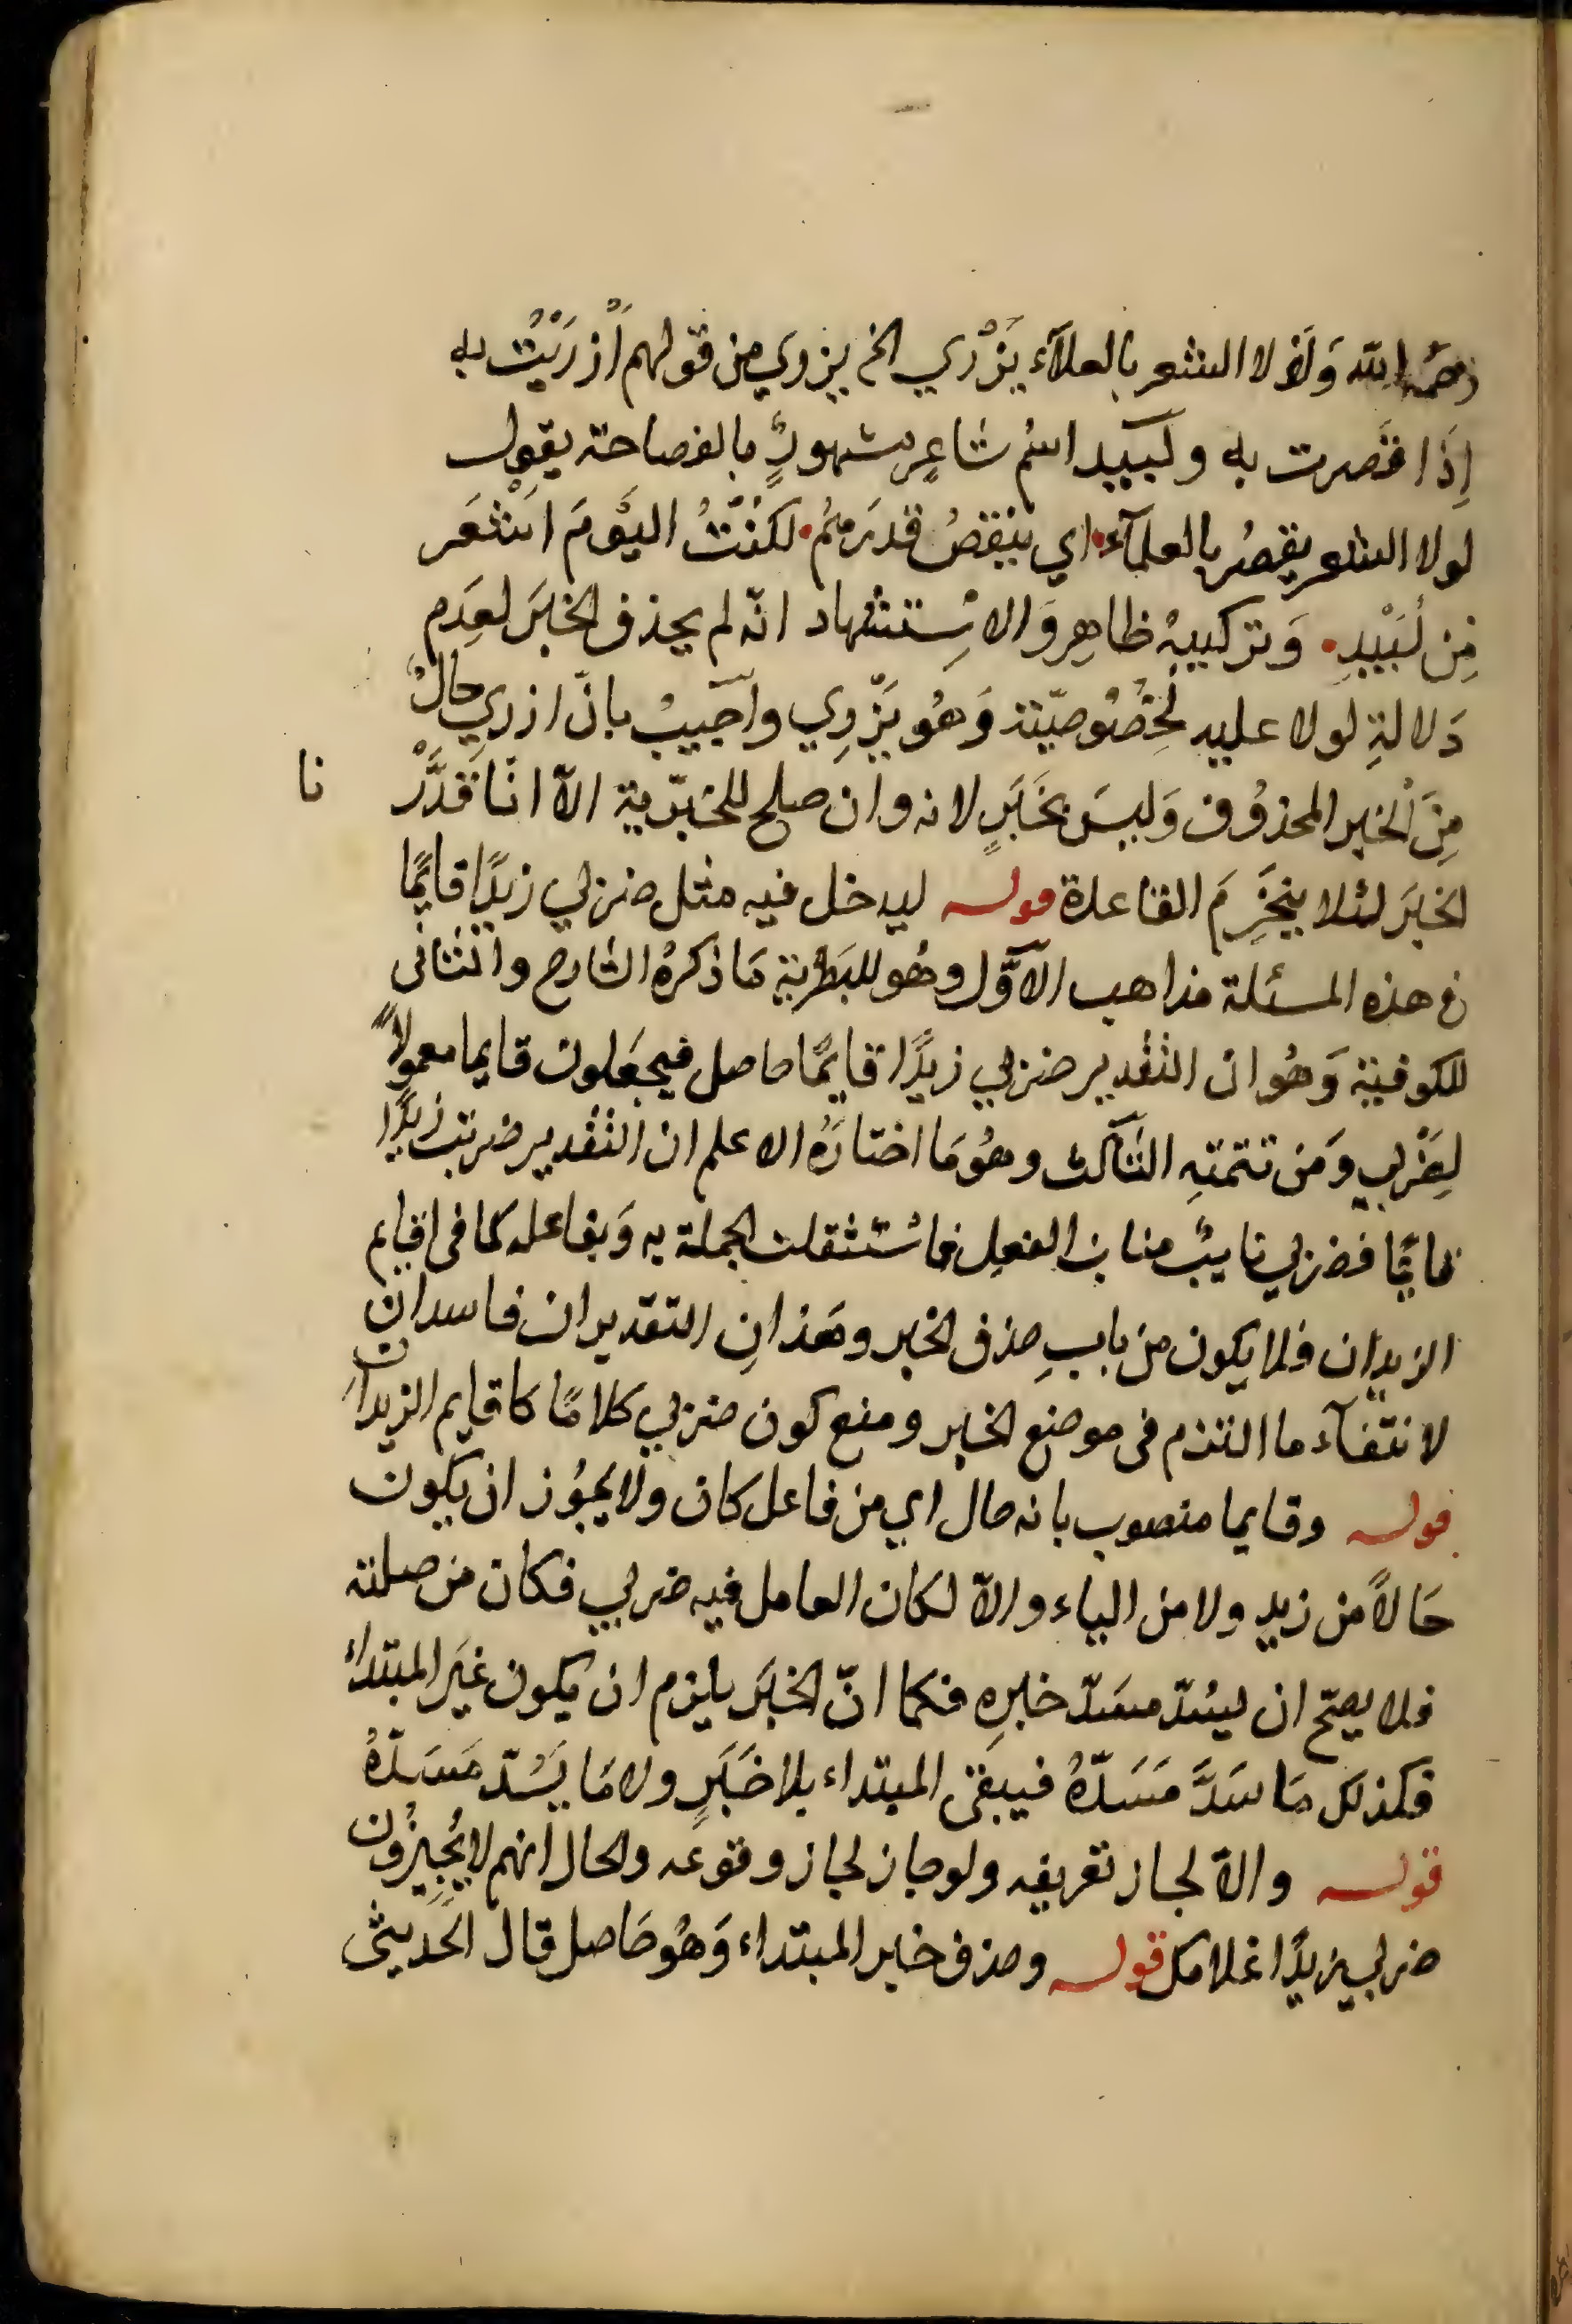 رحمه الله وَلَوْ لا الشعر بالعلآء يَزْري الخ يزوي من قولهم أزرَيْتُ به
اِذَا قصرت به ولبيد اسْم شاعِرٍ مشهورٍ بالفصاحة يقول
لولا الشعر يقصُر بالعلمآء اي ينقصُ قدرَهمُ لكنْتُ اليَوْمَ اشعَر
مِن لَبيْدِ وَتركيبهُ ظاهِر وَالاسْتشهاد انّه لم يحذف الخبَرَ لعدَم
دَلالةِ لولا عليه لخصُوصيّته وَهُو يَزْرِي واجيبَ بانّ ازري حالٌ
مِنَ الخبر المحذوُف وَليسَ بخَبَرٍ لانه وان صلح للخبرية الاّ انا قدَّرْ نا
الخبَرَ لئلا ينخَرِمَ القاعدة قوله ليدخل فيه مثل ضربي زيدًا قايمًا
في هذه المسئلة مذاهب الاَوَّل وهُو للبَصْرية مَا ذكرهُ الشارح والثانى
للكوفية وَهُو ان التقدير ضربي زيدًا قايمًا حاصل فيجعَلون قايما معمولاً
لِضَرْبي وَمن تتمتهِ الثالث وهُو مَا اختارَهُ الاعلم ان التقدير ضربت زيدًا
قائمًا فضربي نايبٌ مناب الفعل فاسْتثقلت الجملة به وَبفاعله كما فى اقايم
الزيدان فلا يكون من بابِ حذف الخبر وهَذانِ التقديران فاسدان
لانتفآء ما التزم فى موضع الخبر ومنع كون ضربي كلامًا كاقايم الزيدانِ
قوله وقايما منصوب بانه حال اي من فاعل كان ولا يجُوز ان يكون
حَالاً من زيدٍ ولا من الياء والاّ لكان العامل فيه ضربي فكان من صلته
فلا يصحّ ان يسُدّ مسَدّ خبرِهِ فكما انّ الخبَر يلزم ان يكون غيَر المبتداء
فكذلك مَا سَدَّ مَسَدّهُ فيبقى المبتداء بلا خَبَرٍ ولا مَا يَسُدّ مَسَدّهُ
قوله والاّ لجاز تعريفه ولو جاز لجاز وقوعه والحال انهم لا يُجيزُون
ضربي زيدًا غلامك قوله وحذف خبر المبتداء وَهُو حَاصل قال الحَديثى